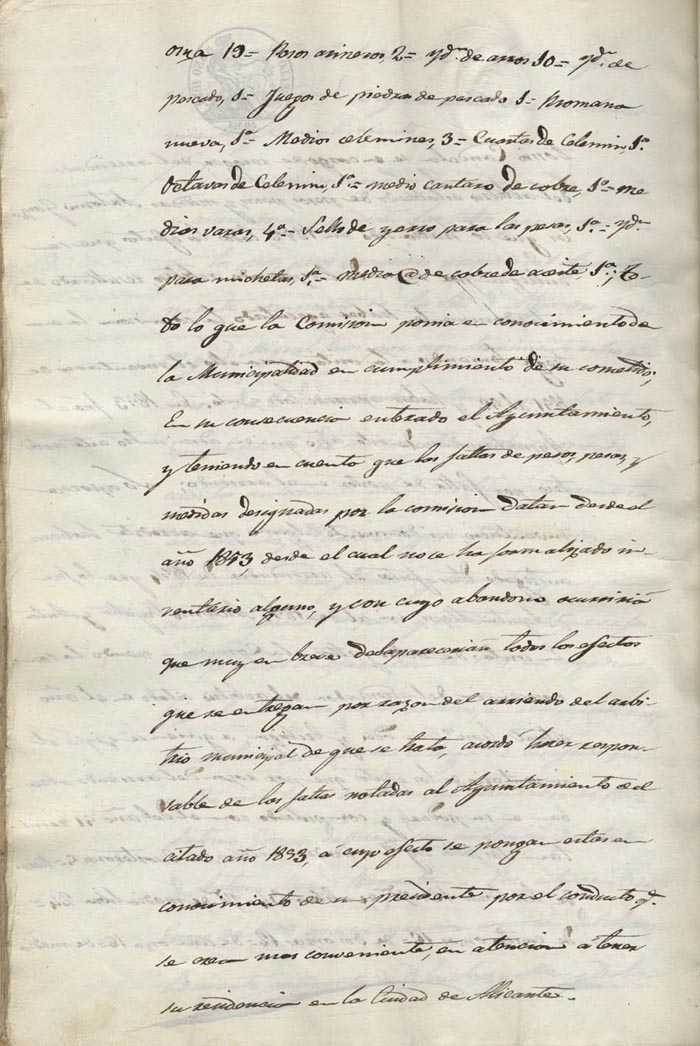 onza 19= Pesos arineros, 2= yd.ⁿ de arros 10= yd.ⁿ de
pescado, 1= Juegos de piedra de pescado 1= Rromana
nueva, 1ª= Medios celemines, 3= Cuartos de Celemin, 1ª=
Octavos de Celemin, 1ª= medio cantaro de cobre, 1ª= me-
dias varas, 4ª= Sello de yerro para las pesas, 1ª= yd.ⁿ
para michetas, 1ª= Media @ de cobre de aceite, 1ª; To-
do lo que la Comision ponia en conocimiento de
la Municipalidad en cumplimiento de su cometido;
En su consecuencia enterado el Ayuntamiento,
y teniendo en cuenta que las faltas de pesos, pesas, y
medidas designadas por la comision datan desde el
año 1853 desde el cual no ce ha formalizado in-
ventario alguno, y con cuyo abandono ocurriria
que muy en breve desaparecerian todos los efectos
que se entregan por razon del arriendo del arbi-
trio municipal de que se trata, acordó hacer respon-
sable de las faltas notadas al Ayuntamiento del
citado año 1853, á cuyo efecto se pongan estas en
conocimiento de su presidente por el conducto q.ᵉ
se crea mas conveniente, en atencion á tener
su residencia en la Ciudad de Alicante.